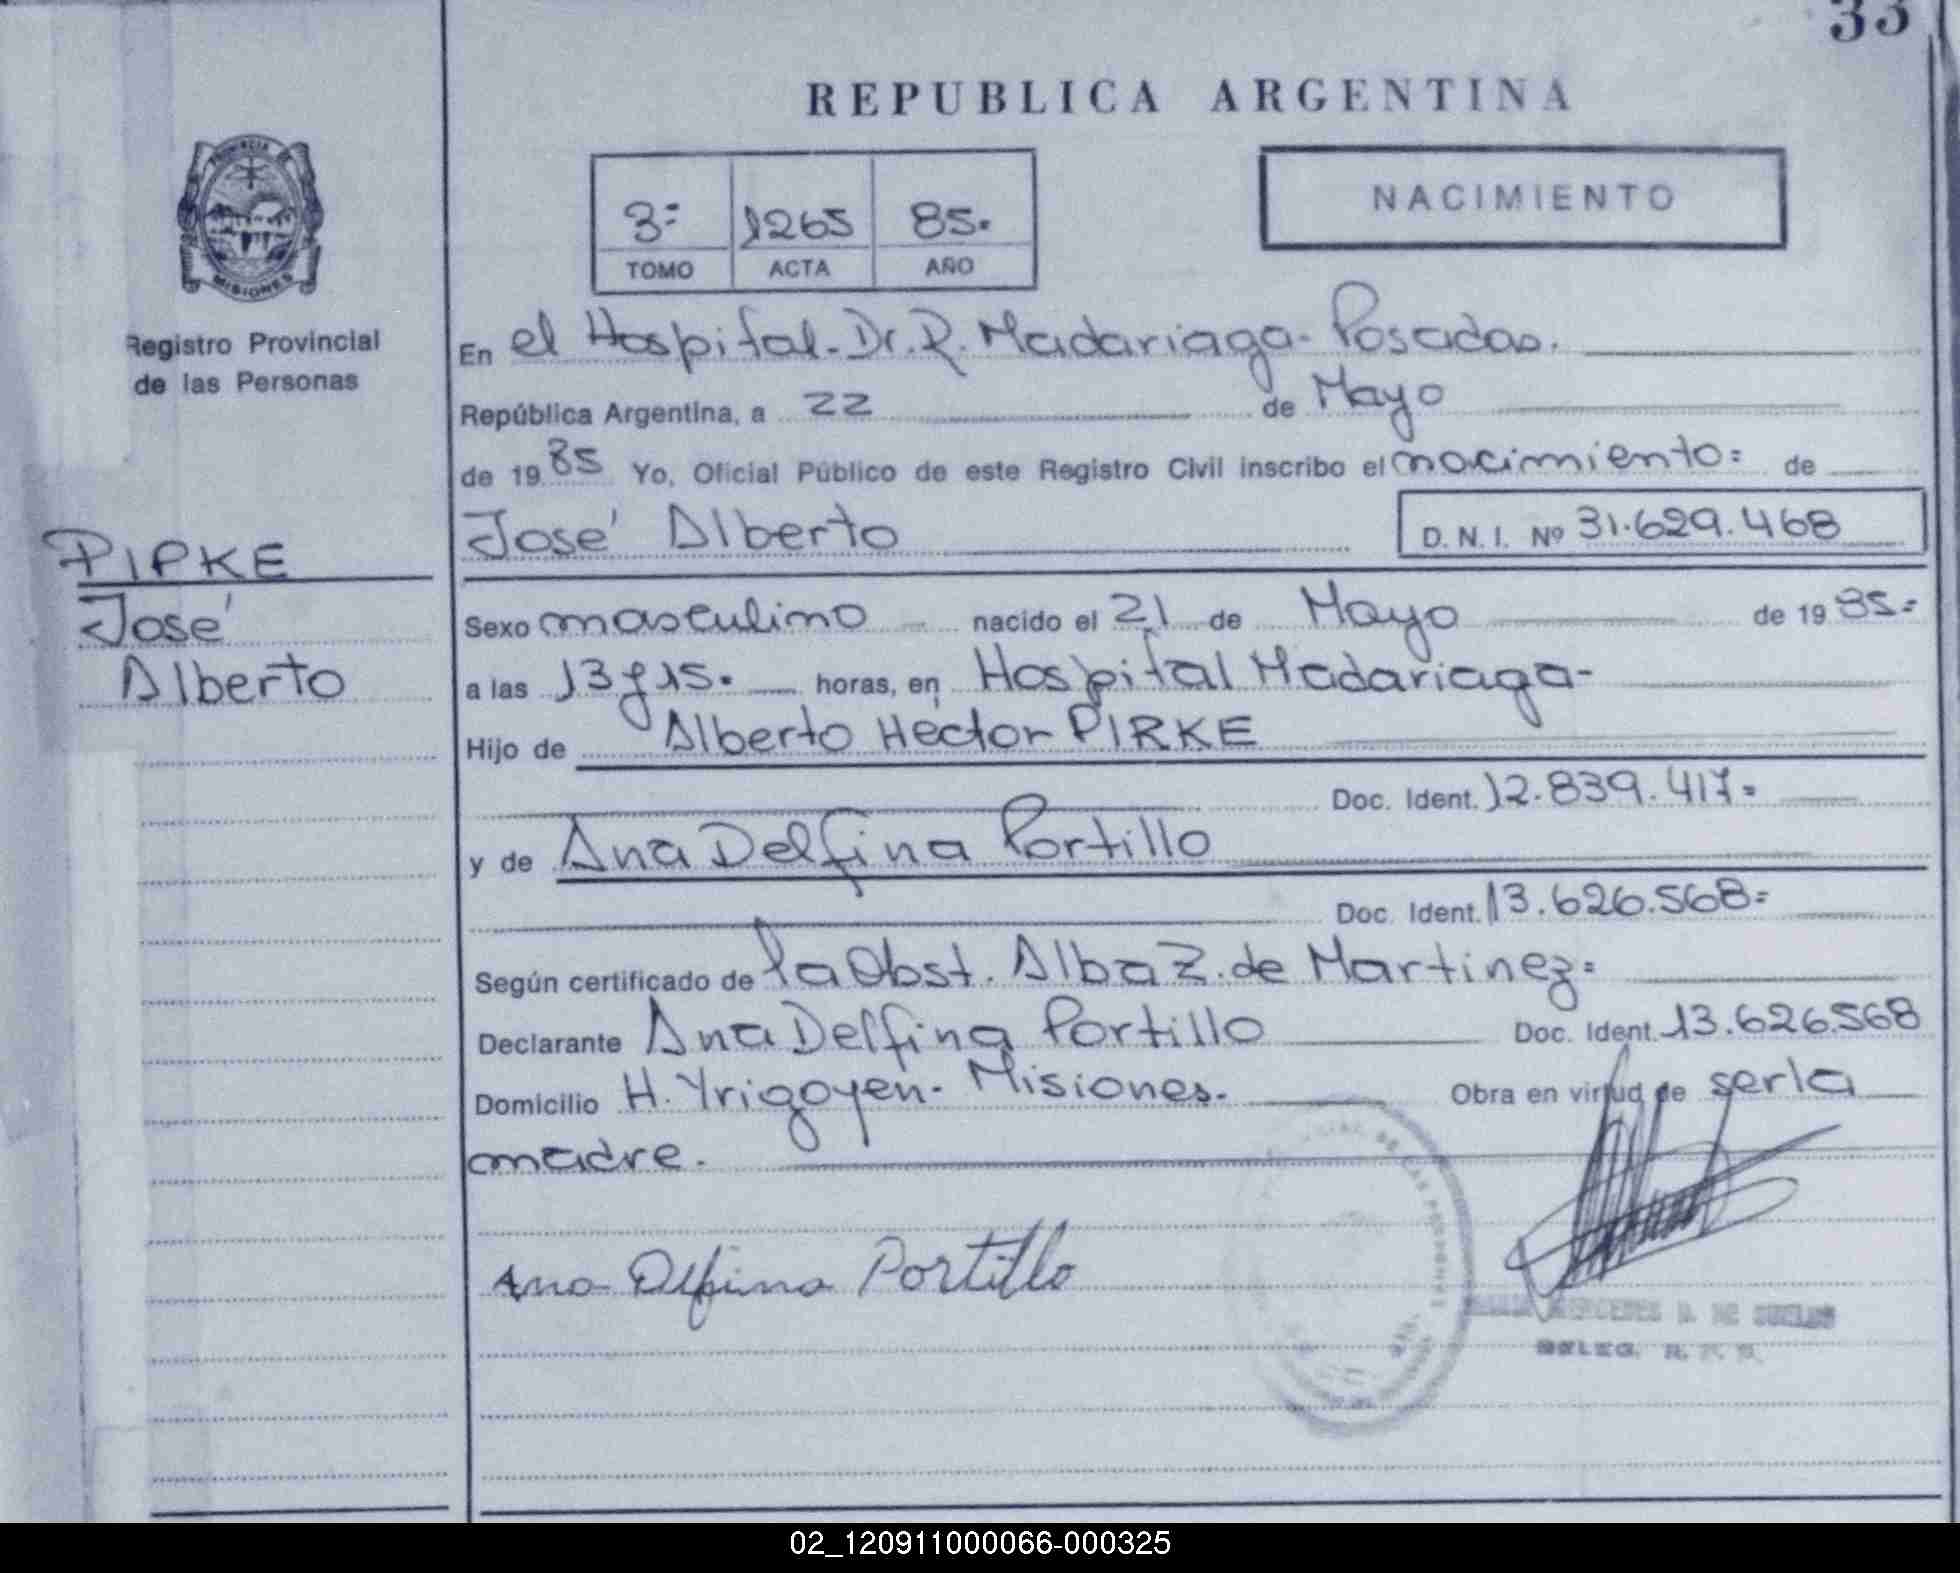 33
REPUBLICA ARGENTINA
PROVINCIA DE
MISIONES
3= 1265 85.
TOMO ACTA AÑO
NACIMIENTO
Registro Provincial
de las Personas
PIPKE
José
Alberto
En el Hospital-Dr. R. Madariaga- Posadas.
República Argentina, a 22 de Mayo
de 1985 Yo, Oficial Público de este Registro Civil inscribo el nacimiento= de
José Alberto D. N. I. Nº 31.629.468
Sexo masculino nacido el 21 de Mayo de 1985=
a las 13 y 15. horas, en Hospital Madariaga-
Hijo de Alberto Héctor PIRKE
Doc. Ident. 12.839.417=
y de Ana Delfina Portillo
Doc. Ident. 13.626.568=
Según certificado de la Obst. Alba Z. de Martinez=
Declarante Ana Delfina Portillo Doc. Ident. 13.626.568
Domicilio H. Yrigoyen- Misiones. Obra en virtud de ser la
madre.
Ana Delfina Portillo
MERCEDES D. DE
DELEG. R. P. P.
02_120911000066-000325